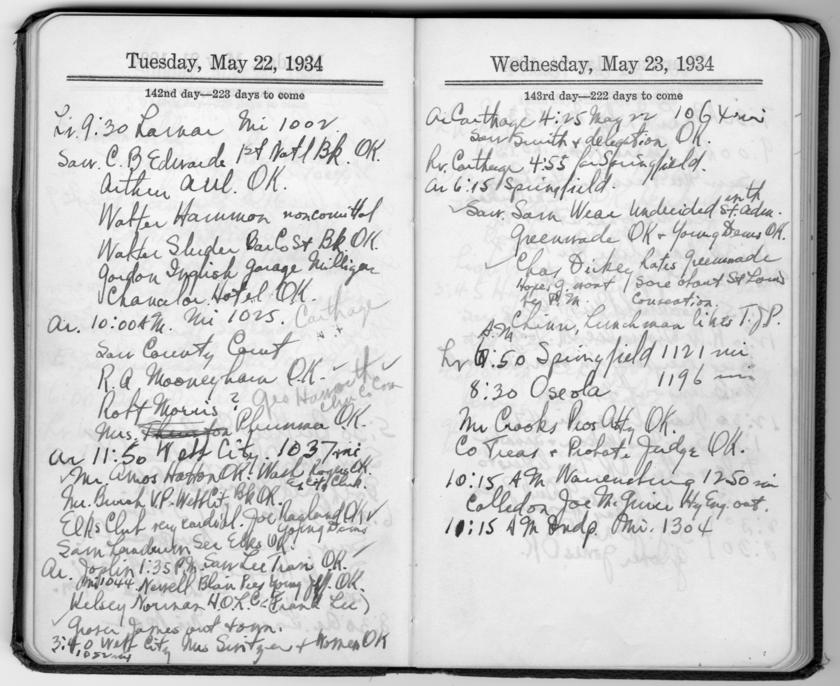 Tuesday, May 22, 1934
142nd day—223 days to come
Lv. 9:30 Lamar Mi 1002
Saw. C. B Edwards 1st Nat'l Bk. OK.
Arthur Aull. OK.
Walter Hammon noncomittal
Walter Sluder Bar Co St Bk OK.
Gordon English Garage Milligan
Chancelor Hotel OK.
Ar. 10:00 A.M. Mi 1025. Carthage
Saw County Court
R. A Mooneyham OK.
Robt Morris ? Geo
Mrs. Plummer OK.
Ar 11:50 Webb City. 1037 mi
Mr Amos Hatton OK. Wash Rogers OK.
Mr. Burch V.P. Webb City Bk OK.
Elks Club very cordial. Joe Ragland OK
Young Dems
Sam Landrum Sec Elks OK.
Ar. Joplin 1:35 P.M. Saw Lee Tram OK.
Mi 1044 Newell Blair Pres Young Jeff. OK.
Kelsey Norman H.O.L.C. (Frank Lee)
Grover James out town.
3:40 Webb City Mrs + Women OK
1052 mi
Wednesday, May 23, 1934
143rd day—222 days to come
Ar Carthage 4:25 May 22 1064 mi
Saw Smith + delegation OK.
Lv. Carthage 4:55 for Springfield.
Ar 6:15 Springfield.
Saw. Sam Wear Undecided with St. Adm.
Greenwade OK + Young Dems OK.
Chas Dickey hates Greenwade
Hopes G. wont / sore about St Louis
Convention
Chinn, Lunchman likes T.J.P.
A.M.
Lv 6:50 Springfield 1121 mi
8:30 Oseola 1196 mi
Mr Crooks Pros Atty OK.
Co Treas + Probate Judge OK.
10:15 A.M Warrensburg 1250 mi
Called on Joe McGuire Hy Eng. out.
10:15 AM Indp. Mi. 1304